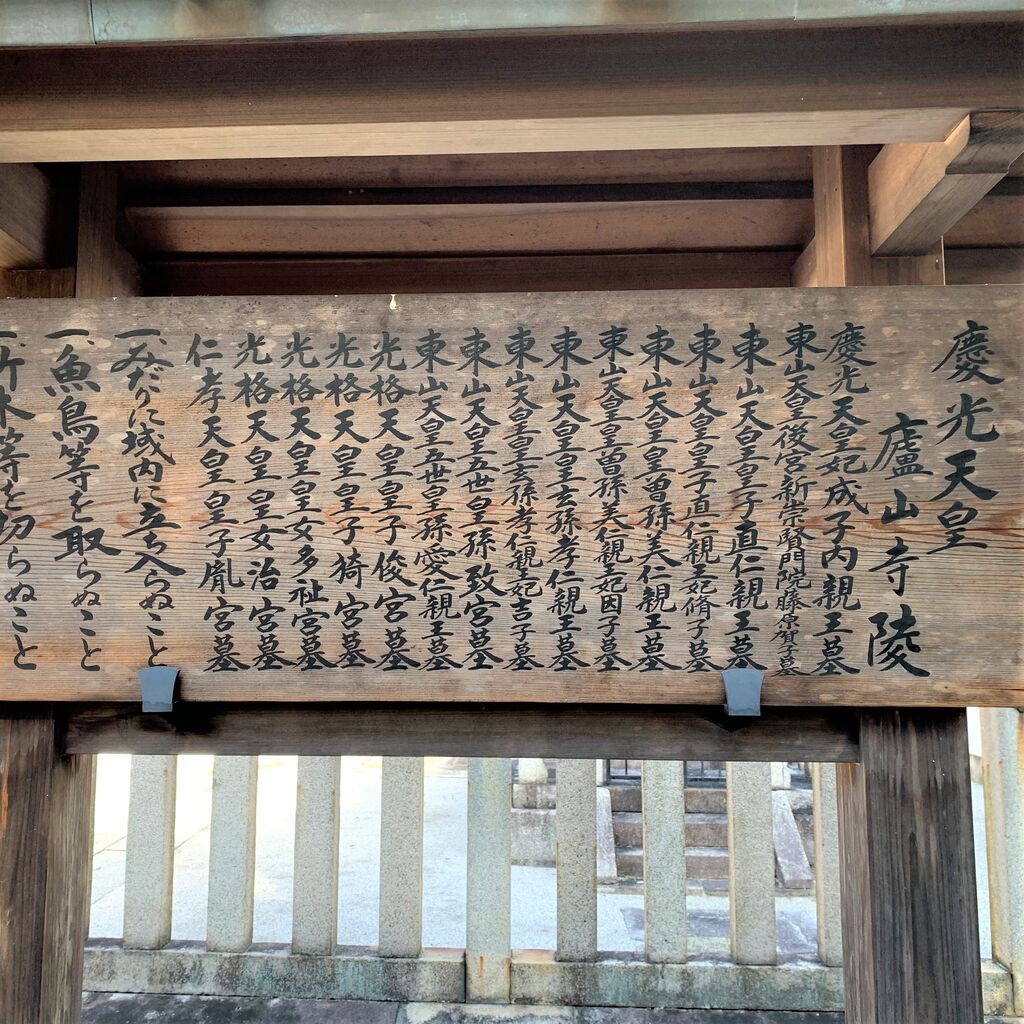 慶光天皇
廬山寺陵
慶光天皇妃成子内親王墓
東山天皇後宮新崇賢門院藤原賀子墓
東山天皇皇子直仁親王墓
東山天皇皇子直仁親王妃脩子墓
東山天皇皇曽孫美仁親王墓
東山天皇皇曽孫美仁親王妃因子墓
東山天皇皇玄孫孝仁親王墓
東山天皇皇玄孫孝仁親王妃吉子墓
東山天皇五世皇孫致宮墓
東山天皇五世皇孫愛仁親王墓
光格天皇皇子俊宮墓
光格天皇皇子猗宮墓
光格天皇皇女多祉宮墓
光格天皇皇女治宮墓
仁孝天皇皇子胤宮墓
一、みだりに域内に立ち入らぬこと
一、魚鳥等を取らぬこと
一、竹木等を切らぬこと